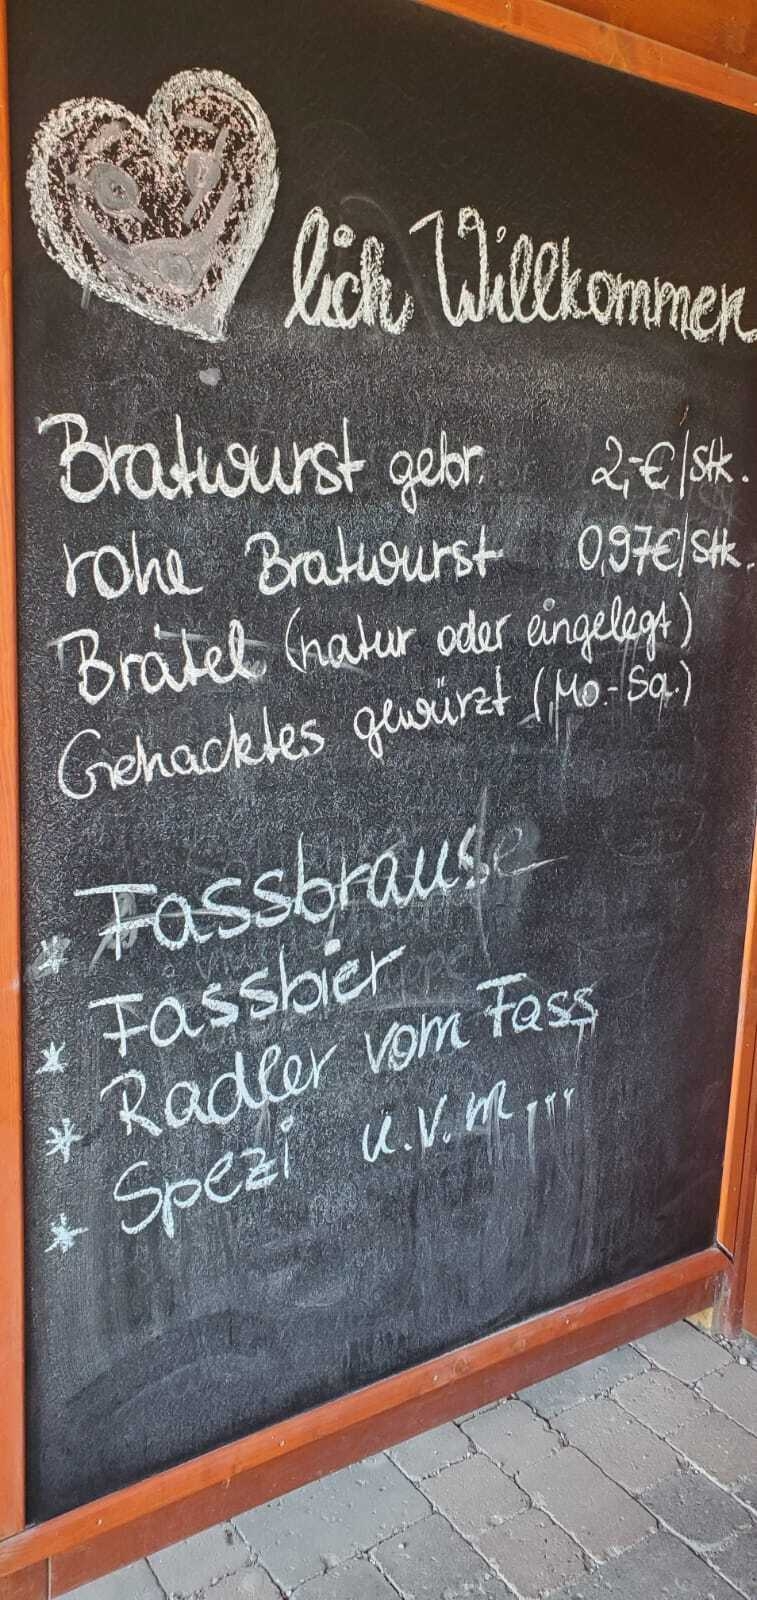 lich Willkommen
Bratwurst gebr. 2,-€/Stk.
rohe Bratwurst 0,97€/Stk.
Brätel (natur oder eingelegt)
Gehacktes gewürzt (Mo.-Sa.)
* Fassbrause
* Fassbier
* Radler vom Fass
* Spezi u.v.m...